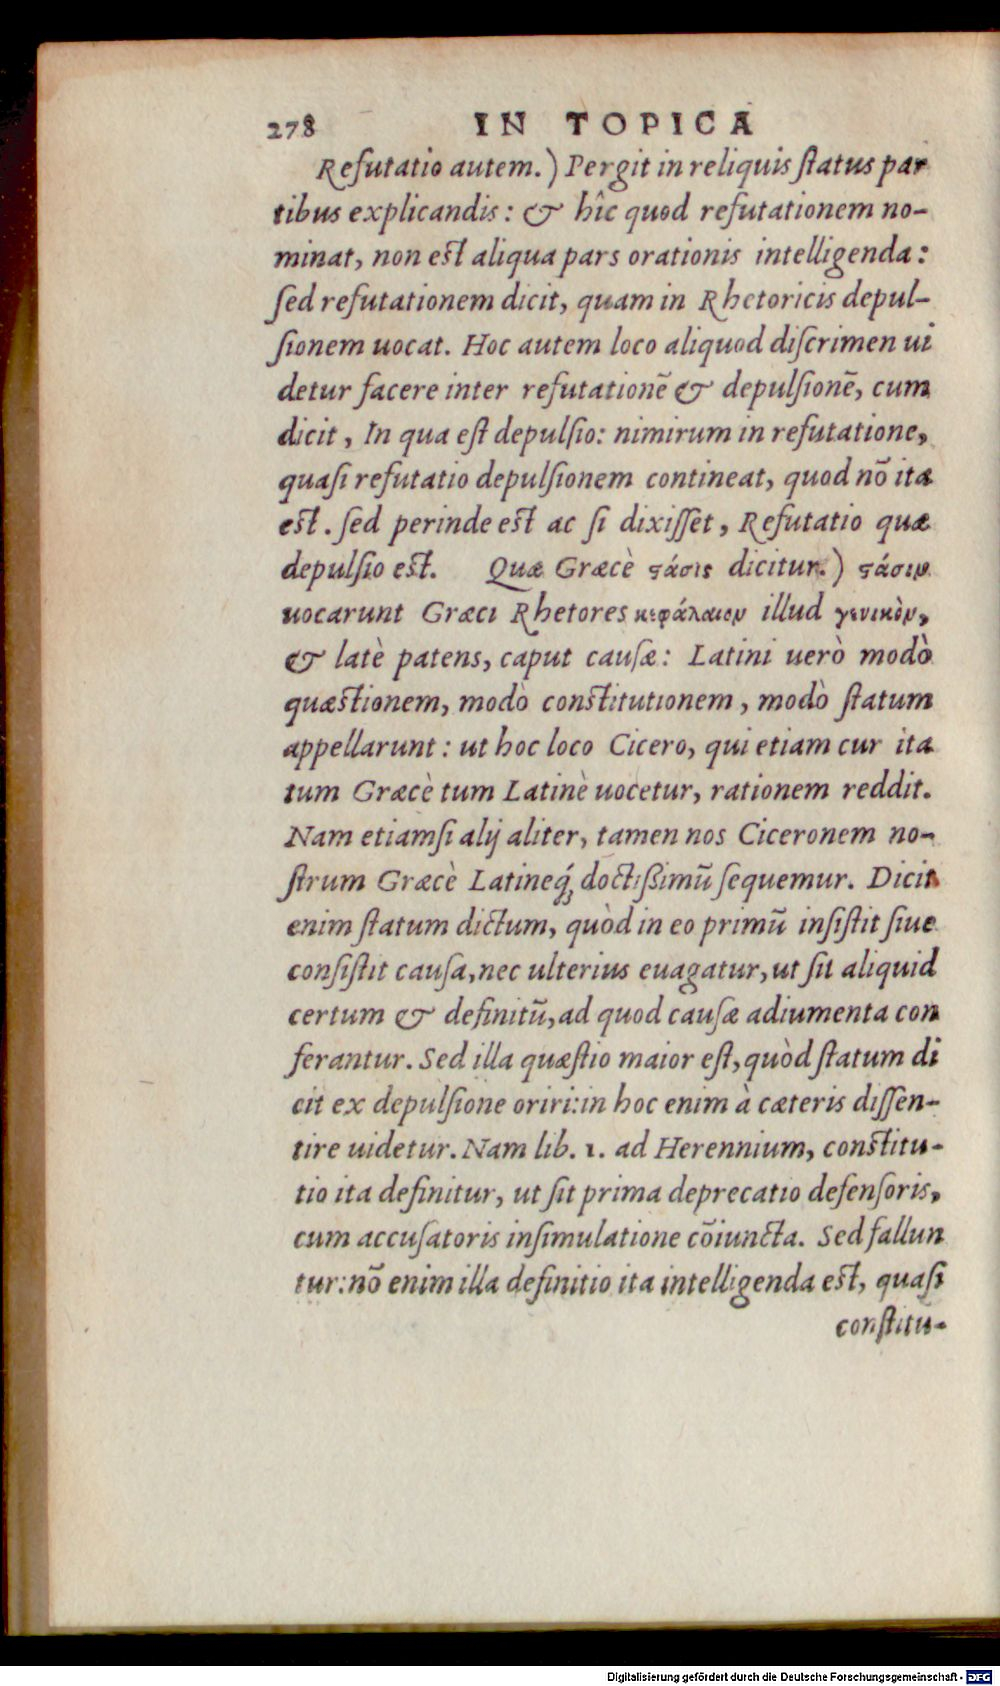 278 IN TOPICA
Refutatio autem.) Pergit in reliquis ſtatus par
tibus explicandis: & hîc quod refutationem no-
minat, non eſt aliqua pars orationis intelligenda:
ſed refutationem dicit, quam in Rhetoricis depul-
ſionem uocat. Hoc autem loco aliquod diſcrimen ui
detur facere inter refutationē & depulſionē, cum
dicit, In qua eſt depulſio: nimirum in refutatione,
quaſi refutatio depulſionem contineat, quod nō ita
eſt. ſed perinde eſt ac ſi dixiſſet, Refutatio quæ
depulſio est. Quæ Græcè ϛάσις dicitur.) ϛάσιν
uocarunt Græci Rhetores κεφάλαιον illud γενικὸν,
& latè patens, caput cauſæ: Latini uerò modò
quæſtionem, modò conſtitutionem, modò ſtatum
appellarunt: ut hoc loco Cicero, qui etiam cur ita
tum Græcè tum Latinè uocetur, rationem reddit.
Nam etiamſi alij aliter, tamen nos Ciceronem no-
ſtrum Græcè Latineq́; doctißimū ſequemur. Dicit
enim ſtatum dictum, quòd in eo primū inſiſtit ſiue
conſiſtit cauſa, nec ulterius euagatur, ut ſit aliquid
certum & definitū, ad quod cauſæ adiumenta con
ferantur. Sed illa quæſtio maior eſt, quòd ſtatum di
cit ex depulſione oriri: in hoc enim à cæteris diſſen-
tire uidetur. Nam lib. 1. ad Herennium, conſtitu-
tio ita definitur, ut ſit prima deprecatio defenſoris,
cum accuſatoris inſimulatione cōiuncta. Sed fallun
tur: nō enim illa definitio ita intelligenda eſt, quaſi
conſtitu-
Digitalisierung gefördert durch die Deutsche Forschungsgemeinschaft - DFG